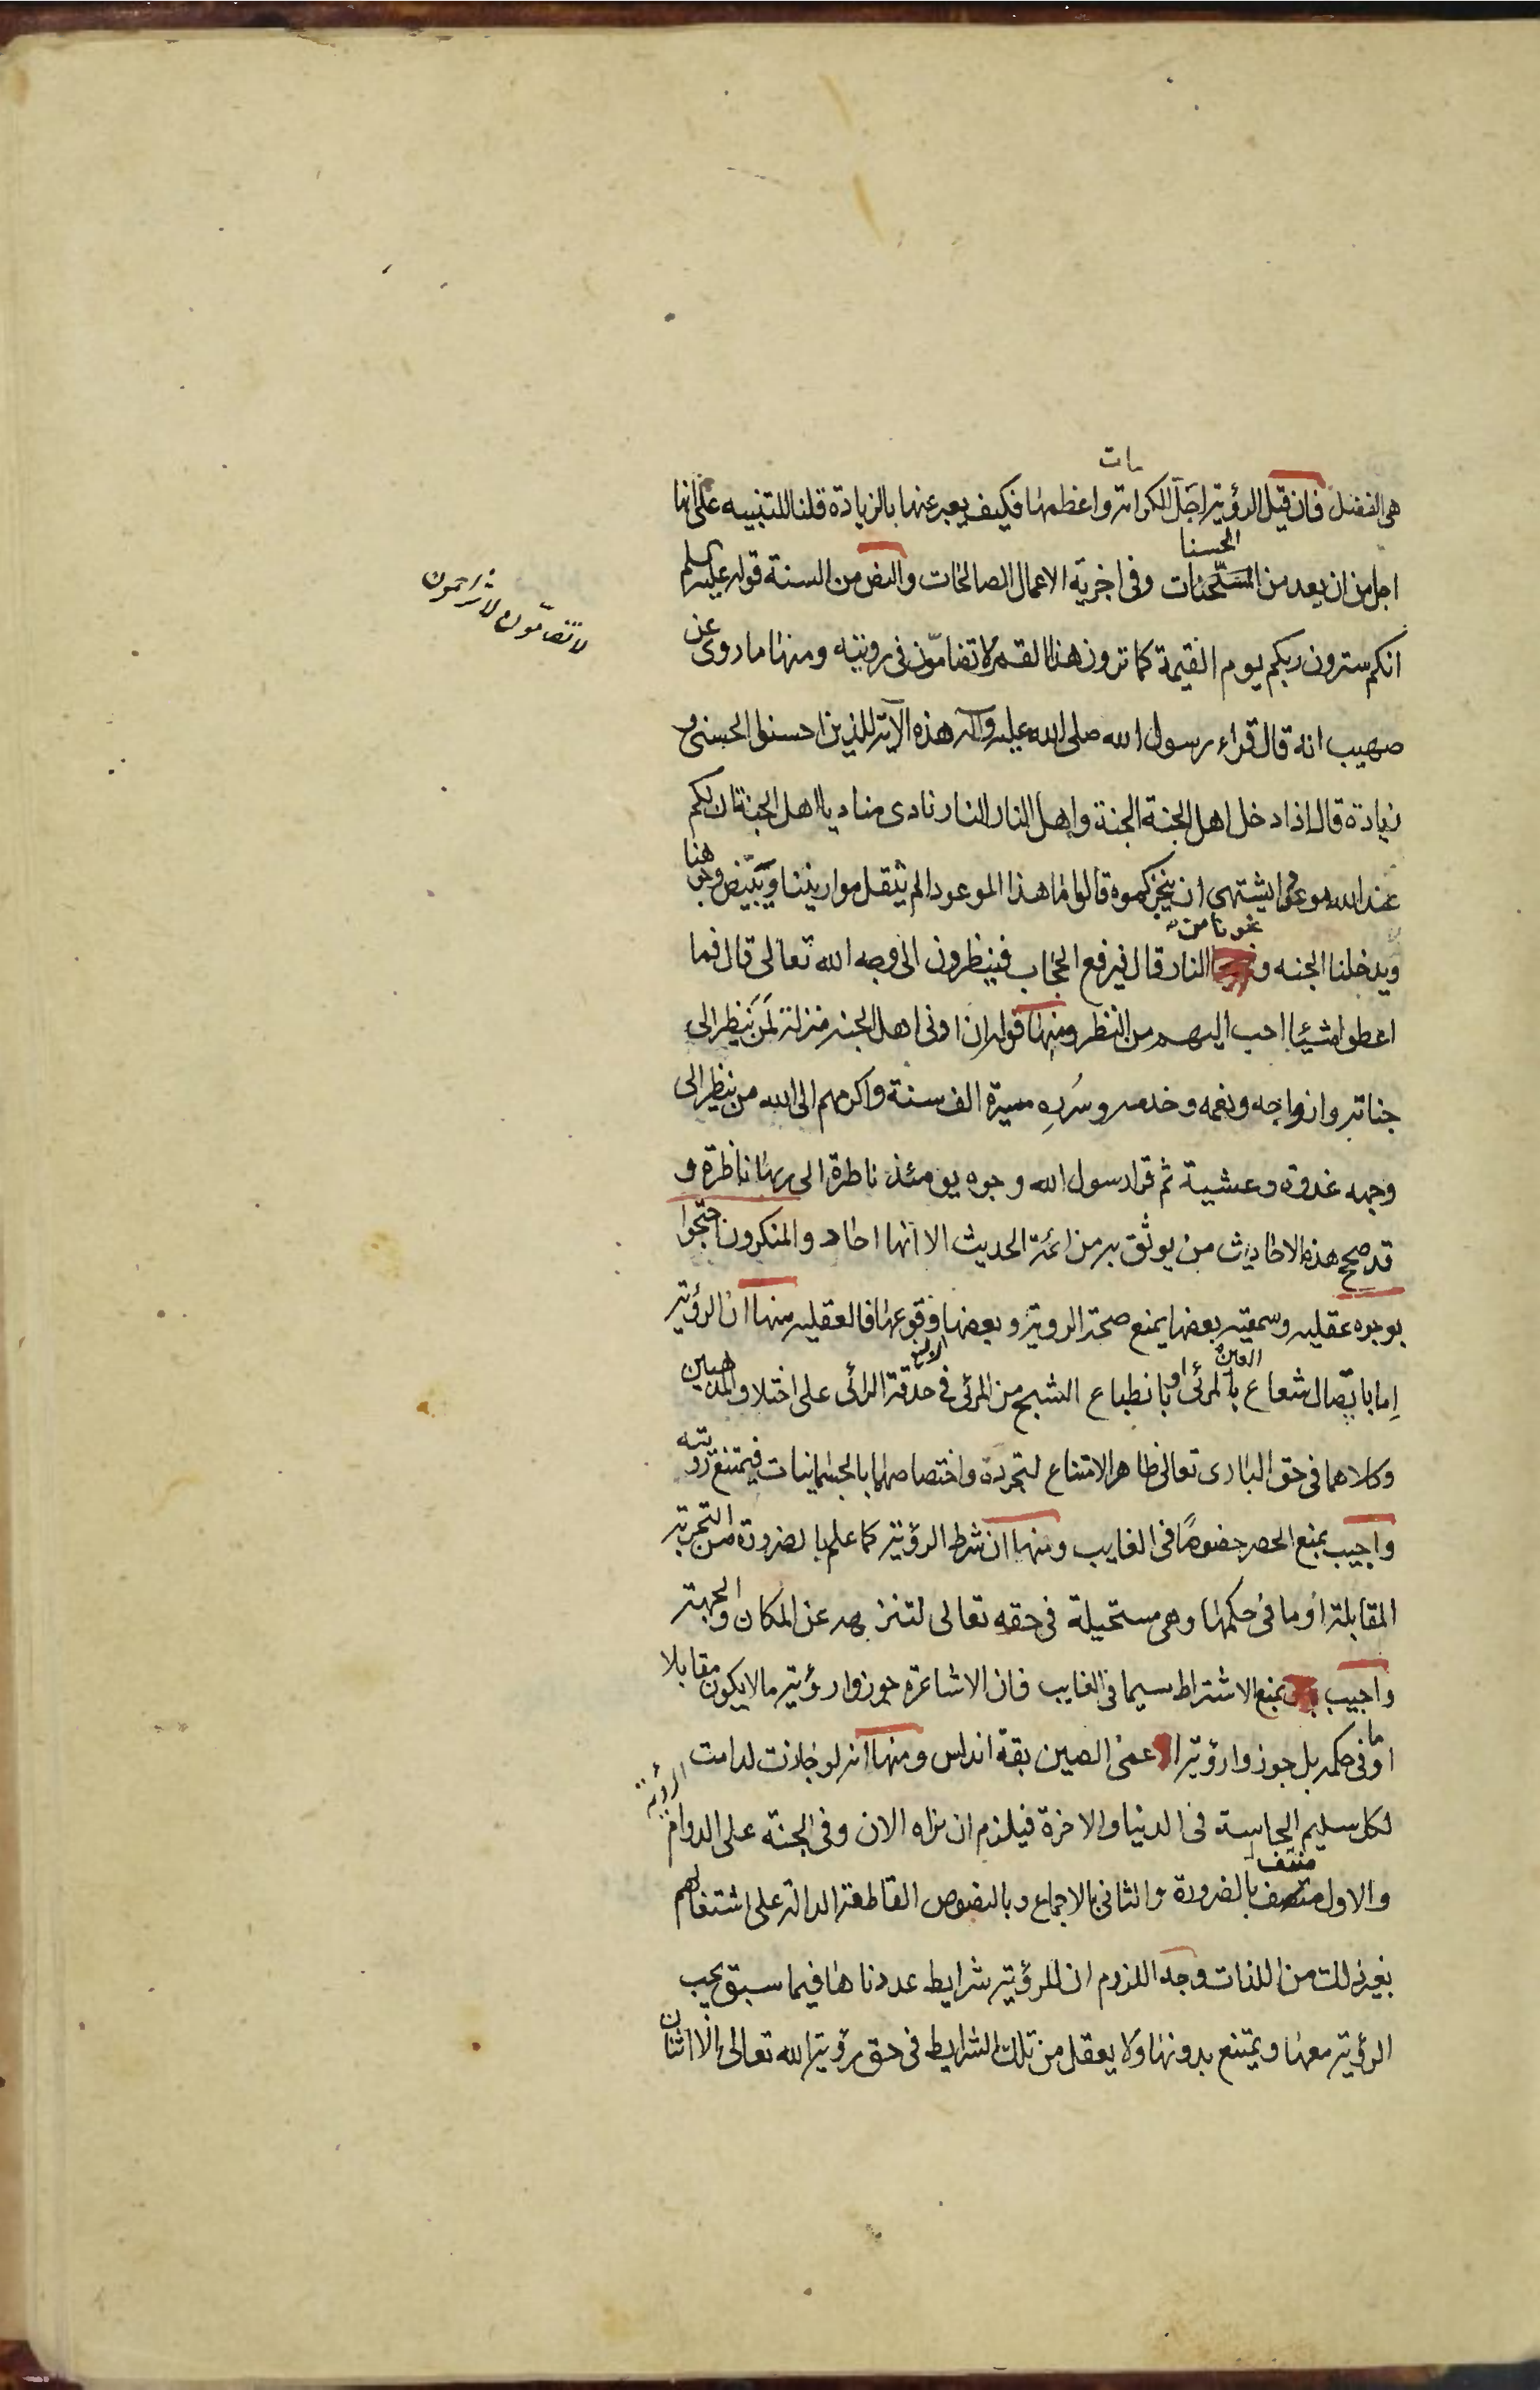 هى الفضل فان قيل الرؤية اجلّ الكرامات واعظمها فكيف يعبر عنها بالزيادة قلنا للتنبيه على انها
اجل من ان يعد من الحسنات وفى اجزية الاعمال الصالحات والنص من السنة قوله عليه السلم
انكم سترون ربكم يوم القيمة كما ترون هذا القمر لا تضامّون فى رويته ومنها ما روى عن
لا تتضامّون لا تتزاحمون
صهيب انه قال قراء رسول الله صلى الله عليه وآله هذه الآية للذين احسنوا الحسنى و
زيادة قال اذا دخل اهل الجنة الجنة واهل النار النار نادى مناد يا اهل الجنة ان لكم
عند الله موعدا يشتهى ان ينجزكموه قالوا ما هذا الموعود الم يثقل موازيننا ويبيّض وجوهنا
ويدخلنا الجنه و من النار قال فيرفع الحجاب فينظرون الى وجه الله تعالى قال فما
اعطوا شيئا احب اليهم من النظر ومنها قوله ان ادنى اهل الجنه منزلة لمن ينظر الى
جناته وازواجه ونعمه وخدمه وسُررِه مسيرة الف سنة واكرمهم الى الله من ينظر الى
وجهه غدوة وعشية ثم قرا رسول الله وجوه يومئذ ناظرة الى ربها ناظرة و
قد صحح هذه الاحاديث من يوثق به من ائمة الحديث الا انها احاد والمنكرون احتجوا
بوجوه عقليه وسمعيه بعضها يمنع صحة الروية وبعضها وقوعها فالعقليه منها ان الرؤية
اِما باتصال شعاع العين بالمرئى او بانطباع الشبح من المرئى فى حدقة الرائى على اختلاف المذهبين
وكلاهما فى حق البارى تعالى ظاهر الامتناع لتجرده واختصاصهما بالجسمانيات فيمتنع رويته
واجيب بمنع الحصر خصوصًا فى الغايب ومنها ان شرط الرؤية كما علم بالضرورة من التجربة
المقابلة او ما فى حكمها وهى مستحيلة فى حقه تعالى لتنزهه عن المكان والجهة
واجيب بمنع الاشتراط سيما فى الغايب فان الاشاعرة جوزوا رؤية ما لا يكون مقابلا
او ما فى حكمه بل جوزوا رؤية اعمى الصين بقة اندلس ومنها انه لو جازت لدامت الرؤية
لكل سليم الحاسة فى الدنيا والاخرة فيلزم ان نراه الان وفى الجنة على الدوام
والاول منتف بالضرورة والثانى بالاجماع وبالنصوص القاطعة الدالة على اشتغالهم
بغير ذلك من اللذات وجه اللزوم ان للرؤية شرايط عددناها فيما سبق يجب
الرؤية معها ويمتنع بدونها ولا يعقل من تلك الشرايط فى حق رؤية الله تعالى الا اثنان